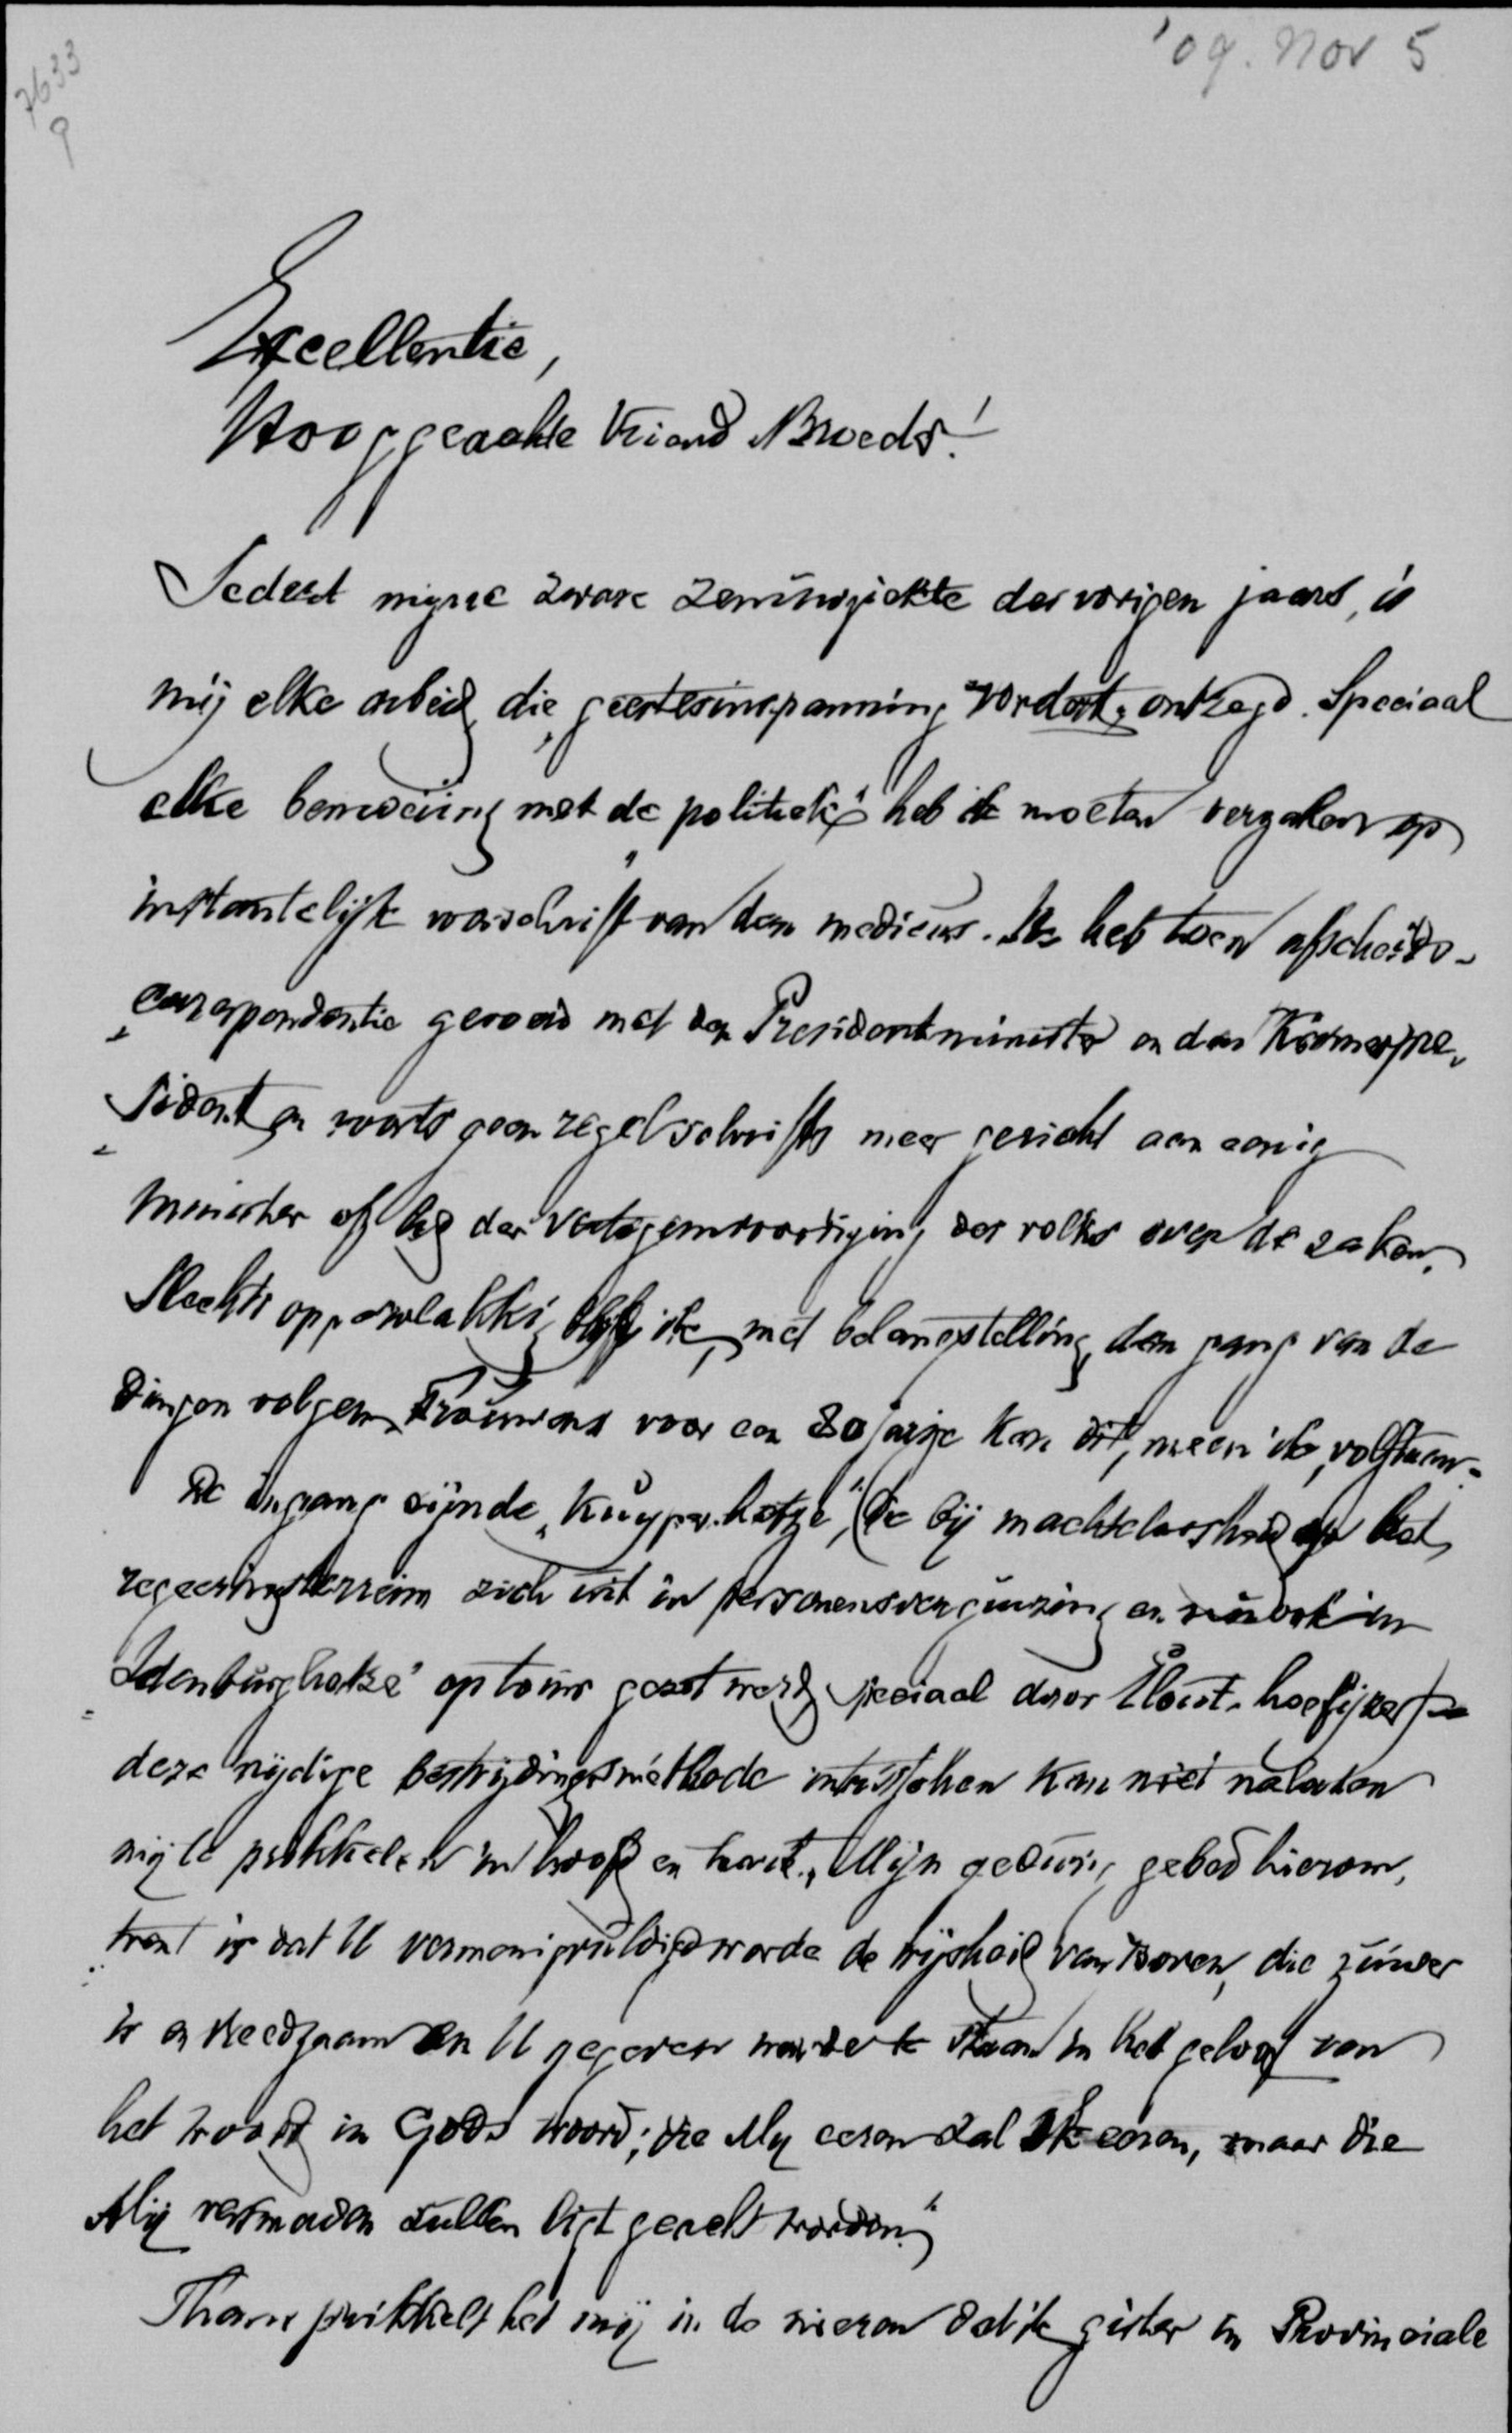 '09. Nov 5
7633
9
Excellentie,
Hooggeachte Vriend & Broeder!
Sedert mijne zware zenuwziekte des vorigen jaars, is
mij elke arbeid die „geestesinspanning vordert" ontzegd. Speciaal
elke bemoeiing met de „politiek" heb ik moeten vergaken op
instantelijk voorschrift van den medicus. Ik heb toen afscheids-
correspondentie gevoerd met den Presidentminister en den Kamerpre-
sident en voorts geen regel schrifts meer gericht aan eenig
Minister of lid der Vertegenwoordiging des volks over de zaken.
Slechts oppervlakkig blijf ik, met belangstelling, den gang van de
dingen volgen. Trouwens voor een 80 jarige kan dit, meen ik, volstaan.
De in gang zijnde „Kuyper-hetze", (die bij machteloosheid op het
regeeringsterrein zich uit in personensverguizing en nu ook in
„Idenburghetze" op touw gezet werd, speciaal door Elout-hoefijzer)
deze nijdige bestrijdingsmethode intusschen kan niet nalaten
mij te prikkelen in hoofd en hart. Mijn gedurig gebed hierom-
trent is dat U vermenigvuldigd worde de wijsheid van boven, die zuiver
is en vreedzaam en U gegeven worde te staan in het geloof van
het woord in Gods woord; „die Mij eeren zal Ik eeren, maar die
Mij versmaden zullen ligt geacht worden."
Thans prikkelt het mij in de nieren dat ik gister in Provinciale